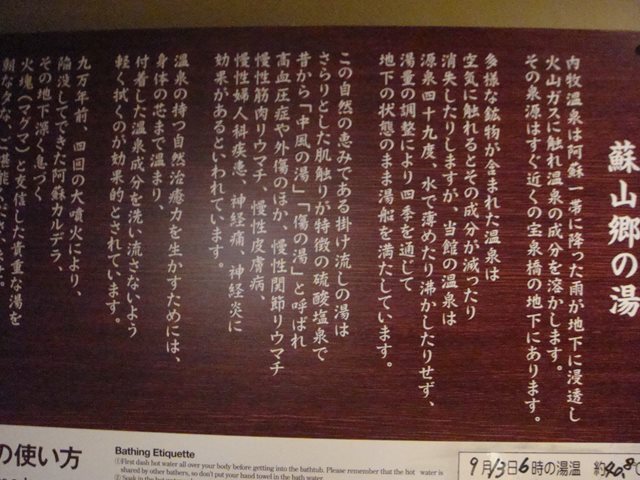 蘇山郷の湯
内牧温泉は阿蘇一帯に降った雨が地下に浸透し
火山ガスに触れ温泉の成分を溶かします。
その泉源はすぐ近くの宝泉橋の地下にあります。
多様な鉱物が含まれた温泉は
空気に触れるとその成分が減ったり
消失したりしますが、当館の温泉は
源泉四十九度、水で薄めたり沸かしたりせず、
湯量の調整により四季を通して
地下の状態のまま湯船を満たしています。
この自然の恵みである掛け流しの湯は
さらりとした肌触りが特徴の硫酸塩泉で
昔から「中風の湯」「傷の湯」と呼ばれ
高血圧症や外傷のほか、慢性関節リウマチ
慢性筋肉リウマチ、慢性皮膚病、
慢性婦人科疾患、神経痛、神経炎に
効果があるといわれています。
温泉の持つ自然治癒力を生かすためには、
身体の芯まで温まり、
付着した温泉成分を洗い流さないよう
軽く拭くのが効果的とされています。
九万年前、四回の大噴火により、
陥没してできた阿蘇カルデラ、
その地下深く息づく
火塊（マグマ）と交信した貴重な湯を
の使い方
Bathing Etiquette
①First dash hot water all over your body before getting into the bathtub. Please remember that the hot water is
shared by other bathers, so don't put your hand towel in the bath water.
9月13日6時の湯温 約40.8℃